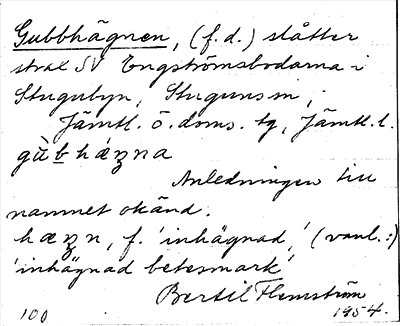 Gubbhägnen, (f.d.) slåtter
strax SV Engströmsbodarna i
Stugubyn, Stuguns sn,
Jämtl. ö. doms. tg, Jämtl. l.
gù̀b hǽʒna
Anledningen till
namnet okänd.
hæʒn, f. 'inhägnad', (vanl.:)
'inhägnad betesmark'
Bertil Flemström
100 1954.